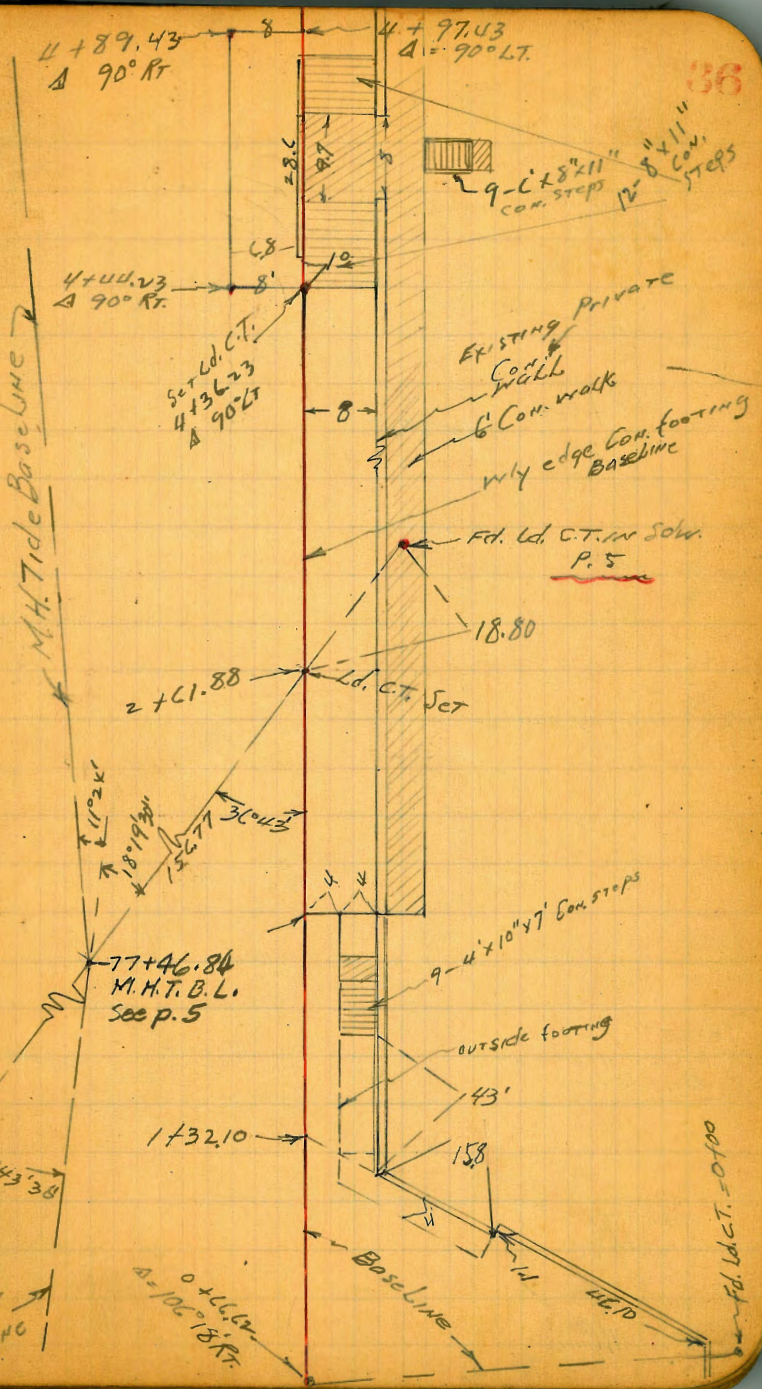 4+89.43
Δ 90° RT
8
4+97.43
Δ = 90° LT.
36
28.6
9.7
8
9-6'x8"x11"
Con. Steps
12-8"x11"
Con.
Steps
6.8
1°
4+44.23
Δ 90° RT.
8'
Set Ld. C.T.
4+36.23
Δ 90° LT
Existing Private
Con.
Wall
8
6' Con. Walk
Wly edge Con. footing
Baseline
M.H. Tide Baseline
Fd. Ld. C.T. in Sdw.
P. 5
18.80
2+61.88
Ld. C.T. Set
11°26'
18°19'30"
156.77
36°43'
4 4
77+46.84
M.H.T.B.L.
See p. 5
9-4'x10"x7' Con. Steps
outside footing
43'
1+32.10
15.8
43'38
Baseline
46.10
0+66.62
Δ=106°18' RT.
Fd. Ld. C.T. = 0+00